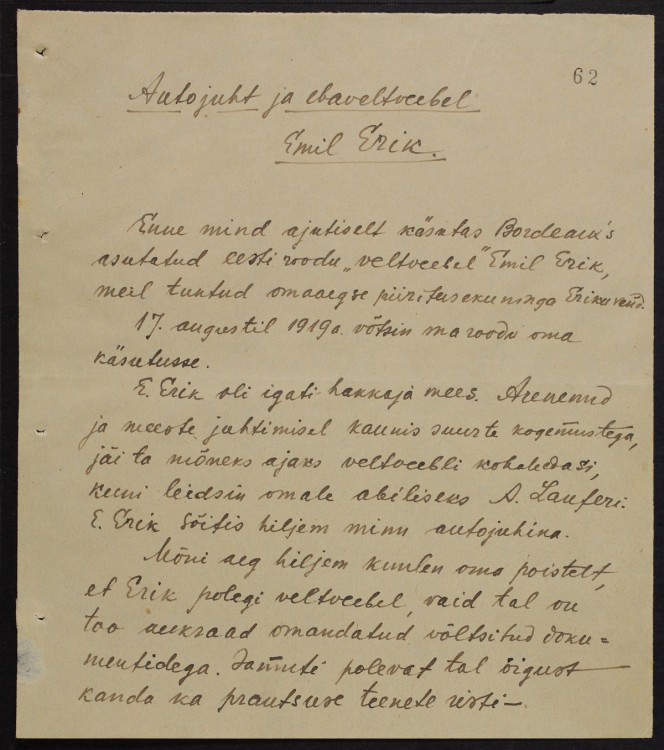 62
Autojuht ja ebaveltveebel
Emil Erik.
Enne mind ajutiselt käsutas Bordeaux's
asutatud eesti roodu „veltveebel" Emil Erik,
meil tuntud omaaegse piiritusekuninga Eriku vend.
17. augustil 1919a. võtsin ma roodu oma
käsutusse.
E. Erik oli igati hakkaja mees. Arenenud
ja meeste juhtimisel kaunis suurte kogemustega,
jäi ta mõneks ajaks veltveebli kohaledasi,
kuni leidsin omale abiliseks A. Lauferi.
E. Erik sõitis hiljem minu autojuhina.
Mõni aeg hiljem kuulen oma poistelt,
et Erik polegi veltveebel, vaid tal on
too aukraad omandatud võltsitud doku=
mentidega. Samuti polevat tal õigust
kanda ka prantsuse teenete risti —.